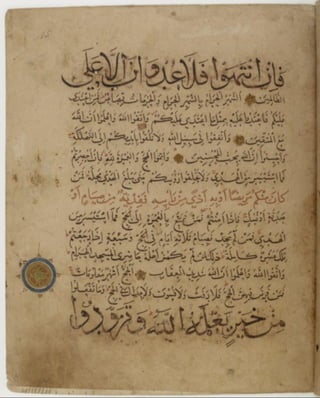 فإن انتهوا فلا عدوان إلا على
الظالمين الشهر الحرام بالشهر الحرام والحرمات قصاص فمن اعتدى
عليكم فاعتدوا عليه بمثل ما اعتدى عليكم واتقوا الله واعلموا أن الله
مع المتقين وأنفقوا في سبيل الله ولا تلقوا بأيديكم إلى التهلكة
وأحسنوا إن الله يحب المحسنين وأتموا الحج والعمرة لله فإن أحصرتم
فما استيسر من الهدي ولا تحلقوا رءوسكم حتى يبلغ الهدي محله فمن
كان منكم مريضا أو به أذى من رأسه ففدية من صيام أو
صدقة أو نسك فإذا أمنتم فمن تمتع بالعمرة إلى الحج فما استيسر من
الهدي فمن لم يجد فصيام ثلاثة أيام في الحج وسبعة إذا رجعتم
تلك عشرة كاملة ذلك لمن لم يكن أهله حاضري المسجد الحرام
واتقوا الله واعلموا أن الله شديد العقاب الحج أشهر معلومات
فمن فرض فيهن الحج فلا رفث ولا فسوق ولا جدال في الحج وما تفعلوا
من خير يعلمه الله وتزودوا